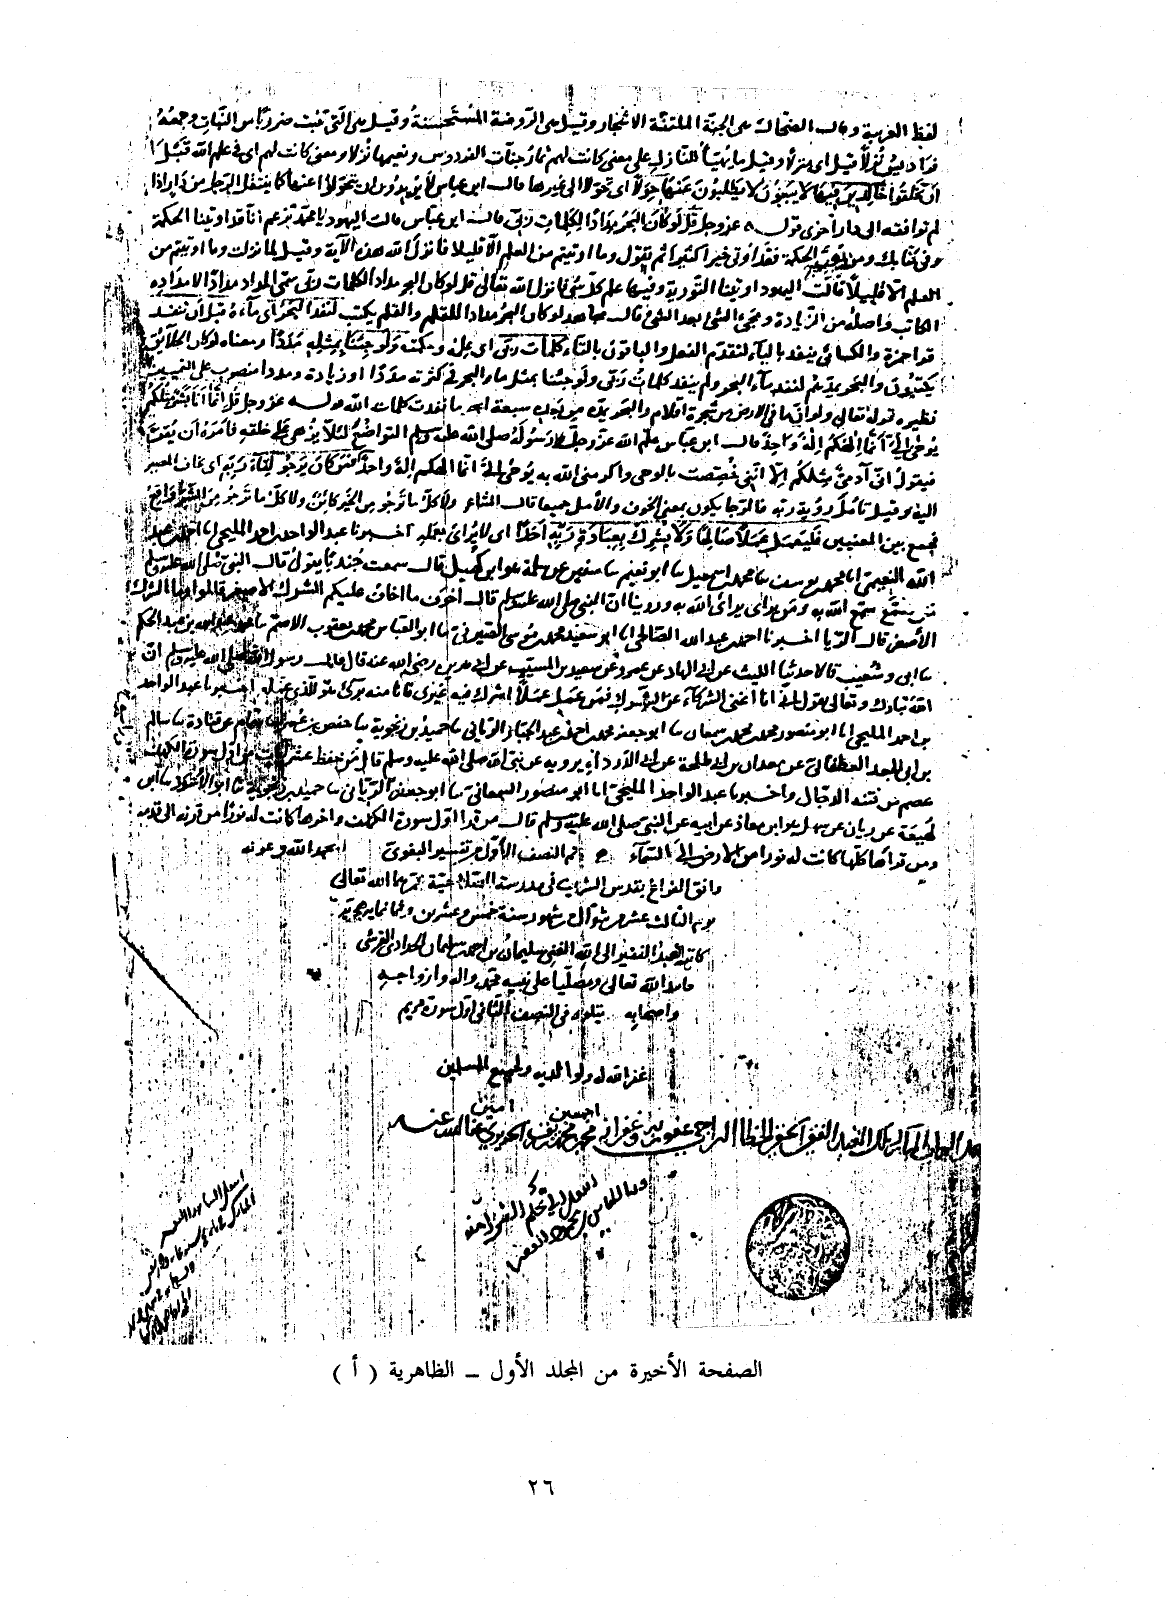 لفظ العربية وقال الضحاك هي الجنة الملتفة الاشجار وقيل هي الروضة المستحسنة وقيل هي التي تنبت ضروبا من النبات وجمعه
فراديس نزلا قيل اى منزلا وقيل ما يهيأ للنازل على معنى كانت لهم ثمار جنات الفردوس ونعيمها نزلا ومعنى كانت لهم اى في علم الله قبل
ان يخلقوا خالدين فيها لا يبغون لا يطلبون عنها حولا اى تحولا الى غيرها قال ابن عباس لا يريدون ان يتحولوا عنها كما ينتقل الرجل من دار اذا
لم توافقه الى دار اخرى قوله عز وجل قل لو كان البحر مدادا لكلمات ربى قال ابن عباس قالت اليهود يا محمد تزعم انا قد اوتينا الحكمة
وفى كتابك ومن يؤت الحكمة فقد اوتى خيرا كثيرا ثم تقول وما اوتيتم من العلم الا قليلا فانزل الله هذه الآية وقيل لما نزلت وما اوتيتم من
العلم الا قليلا قالت اليهود اوتينا التورية وفيها علم كل شئ فانزل الله تعالى قل لو كان البحر مدادا لكلمات ربى سمى المداد مدادا لامداده
الكاتب واصله من الزيادة ومجئ الشئ بعد الشئ قال مجاهد لو كان البحر مدادا للقلم والقلم يكتب لنفد البحر اى ماءه قبل ان تنفد
قرا حمزة والكسائى ينفد بالياء لتقدم الفعل والباقون بالتاء كلمات ربى اى علمه وحكمه ولو جئنا بمثله مددا ومعناه لو كان الخلائق
يكتبون والبحر يمدهم لنفد ماء البحر ولم ينفد كلمات ربى ولو جئنا بمثل ماء البحر في كثرته مددا او زيادة ومددا منصوب على التمييز
نظيره قوله تعالى ولو ان ما فى الارض من شجرة اقلام والبحر يمده من بعده سبعة ابحر ما نفدت كلمات الله قوله عز وجل قل انما انا بشر مثلكم
يوحى الى انما الهكم اله واحد قال ابن عباس علم الله عز وجل رسوله صلى الله عليه وسلم التواضع لئلا يزهى على خلقه فامره ان يقر
فيقول انى آدمى مثلكم الا انى خصصت بالوحى واكرمنى الله به يوحى الى انما الهكم اله واحد فمن كان يرجو لقاء ربه اى يخاف المصير
اليه وقيل تأمل رؤية ربه فالرجا يكون بمعنى الخوف والامل جميعا قال الشاعر ولا كل ما ترجو من الخير كائن ولا كل ما ترجو من الشر واقع
فجمع بين المعنيين فليعمل عملا صالحا ولا يشرك بعبادة ربه احدا اى لا يرائى بعمله اخبرنا عبد الواحد بن احمد المليحى انا احمد بن عبد
الله النعيمى انا محمد بن يوسف نا محمد بن اسمعيل نا ابو نعيم نا سفين عن سلمة هو ابن كهيل قال سمعت جندبا يقول قال النبى صلى الله عليه وسلم
من يسمع سمع الله به ومن يرائى يرائى الله به وروينا ان النبى صلى الله عليه وسلم قال اخوف ما اخاف عليكم الشرك الاصغر قالوا وما الشرك
الاصغر قال الريا اخبرنا احمد بن عبد الله الصالحى انا ابو سعيد محمد بن موسى الصيرفى نا ابو العباس محمد بن يعقوب الاصم نا محمد بن عبد الله بن عبد الحكم
نا ابى وشعيب قالا حدثنا الليث عن ابن الهاد عن عمرو عن سعيد بن المسيب عن ابى هريرة رضى الله عنه قال قال رسول الله صلى الله عليه وسلم ان
الله تبارك وتعالى يقول انا اغنى الشركاء عن الشرك فمن عمل عملا اشرك فيه غيرى فانا منه برئ هو للذى عمله اخبرنا عبد الواحد
بن احمد المليحى انا ابو منصور محمد بن محمد بن سمعان نا ابو جعفر محمد بن احمد بن عبد الجبار الريانى نا حميد بن زنجوية نا حفص بن عمر نا همام عن قتادة نا سالم
بن ابى الجعد الغطفانى عن معدان بن ابى طلحة عن ابى الدرداء يرويه عن نبى الله صلى الله عليه وسلم قال من حفظ عشر آيات من اول سورة الكهف
عصم من فتنة الدجال واخبرنا عبد الواحد المليحى انا ابو منصور السمعانى نا ابو جعفر الريانى نا حميد بن زنجوية نا ابو الاسود نا ابن
لهيعة عن زبان عن سهل هو ابن معاذ عن ابيه عن النبى صلى الله عليه وسلم قال من قرا اول سورة الكهف واخرها كانت له نورا من قرنه الى قدمه
ومن قرأها كلها كانت له نورا من الارض الى السماء تم النصف الأول من تفسير البغوى بحمد الله وعونه
وافق الفراغ بقدس الشريف فى مدرسة الصلاحية عمرها الله تعالى
يوم الثالث عشر من شوال من شهور سنة خمس وعشرين وثمانماية هجرية
كاتبه العبد الفقير الى الله الغنى سليمان بن احمد بن سليمان القرشى
حامدا لله تعالى ومصليا على نبيه محمد واله وازواجه
واصحابه يتلوه فى النصف الثانى اول سورة مريم
غفر الله له ولوالديه ولجميع المسلمين
اجمعين امين
الصفحة الأخيرة من المجلد الأول ــ الظاهرية ( أ )
٢٦